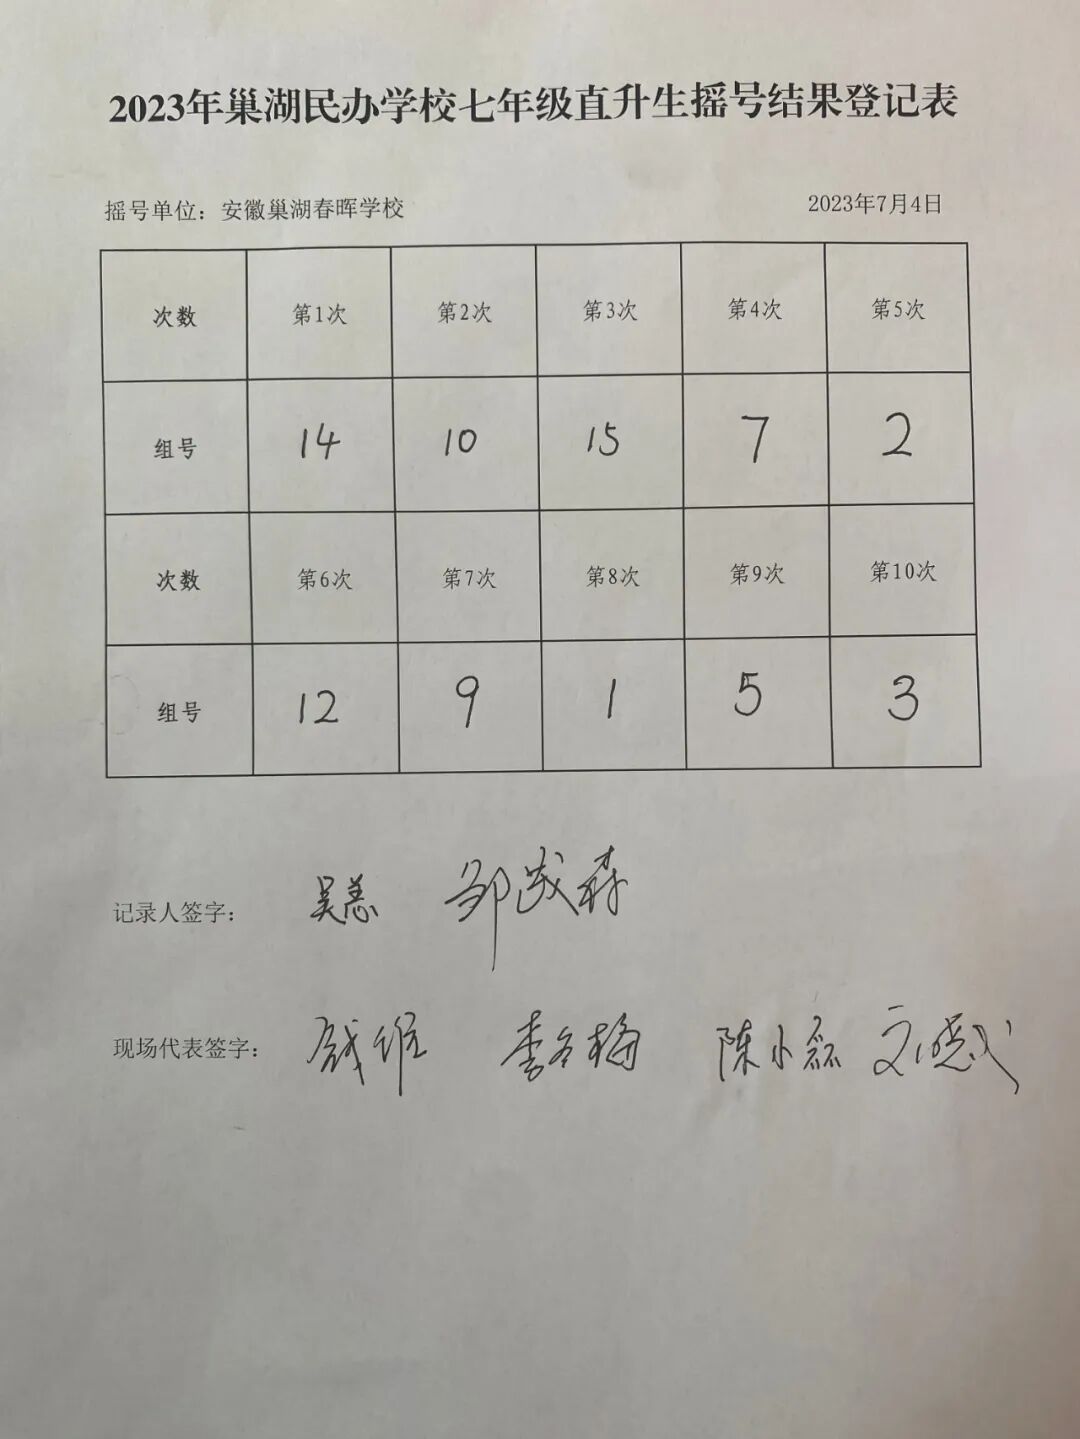 2023年巢湖民办学校七年级直升生摇号结果登记表
摇号单位：安徽巢湖春晖学校 2023年7月4日
次数 第1次 第2次 第3次 第4次 第5次
组号 14 10 15 7 2
次数 第6次 第7次 第8次 第9次 第10次
组号 12 9 1 5 3
记录人签字： 吴恙
现场代表签字： 钱维 李冬梅 陈小磊